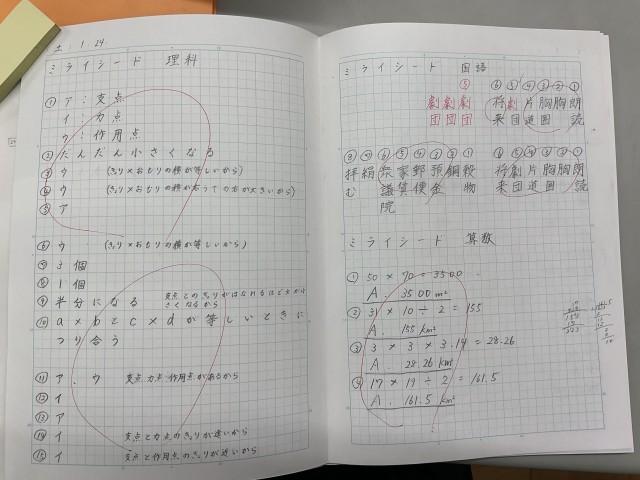 土 1.24
ミライシート 理科
① ア:支点
イ:力点
ウ:作用点
② だんだん小さくなる
③ ウ (きょり×おもりの積が等しいから)
④ ウ (きょり×おもりの積が右うでの方が大きいから)
⑤ ア
⑥ ウ (きょり×おもりの積が等しいから)
⑦ 3個
⑧ 1個
⑨ 半分になる
⑩ a×bとc×dが等しいときに
つり合う
⑪ ア、ウ 支点 力点 作用点があるから
⑫ イ
⑬ ア
⑭ イ 支点と力点のきょりが遠いから
⑮ イ 支点と作用点のきょりが近いから
ミライシート 国語
① 朗読
② 胸
③ 胸囲
④ 片道
⑤ 劇団
⑤ 劇団
劇団
劇団
① 朗読
② 胸
③ 胸囲
④ 片道
⑤ 劇団
① 穀物
② 鋼
③ 預金
④ 郵便
⑤ 家賃
⑥ 衆議院
⑦ 絹
⑧ 拝む
ミライシート 算数
① 50×70=3500
A. 3500m²
② 31×10÷2=155
A. 155km²
③ 3×3×3.14=28.26
A. 28.26km²
④ 17×19÷2=161.5
A. 161.5km²